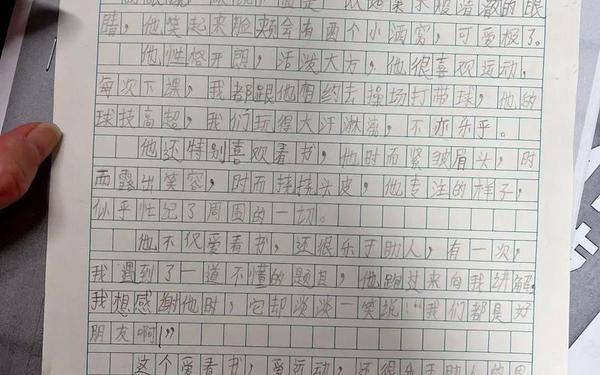 眼
睛，他笑起来脸颊会有两个小酒窝，可爱极了。
他性格开朗，活发大方，他很喜欢运动，
每次下课，我都跟他相约去操场打带球，他的
球技高超，我们玩得大汗淋漓，不亦乐乎。
他还特别喜欢看书，他时而紧皱眉头，时
而露出笑容，时而挂挂头皮，他专注的样子，
似乎忘记了周围的一切。
他不仅爱看书，还很乐于助人，有一次，
我遇到了一道不懂的题目，他跑过来向我讲解，
我想感谢他时，它却淡淡一笑说：“我们都是好
朋友啊！”
这个爱看书，爱运动，还很乐于助人的男